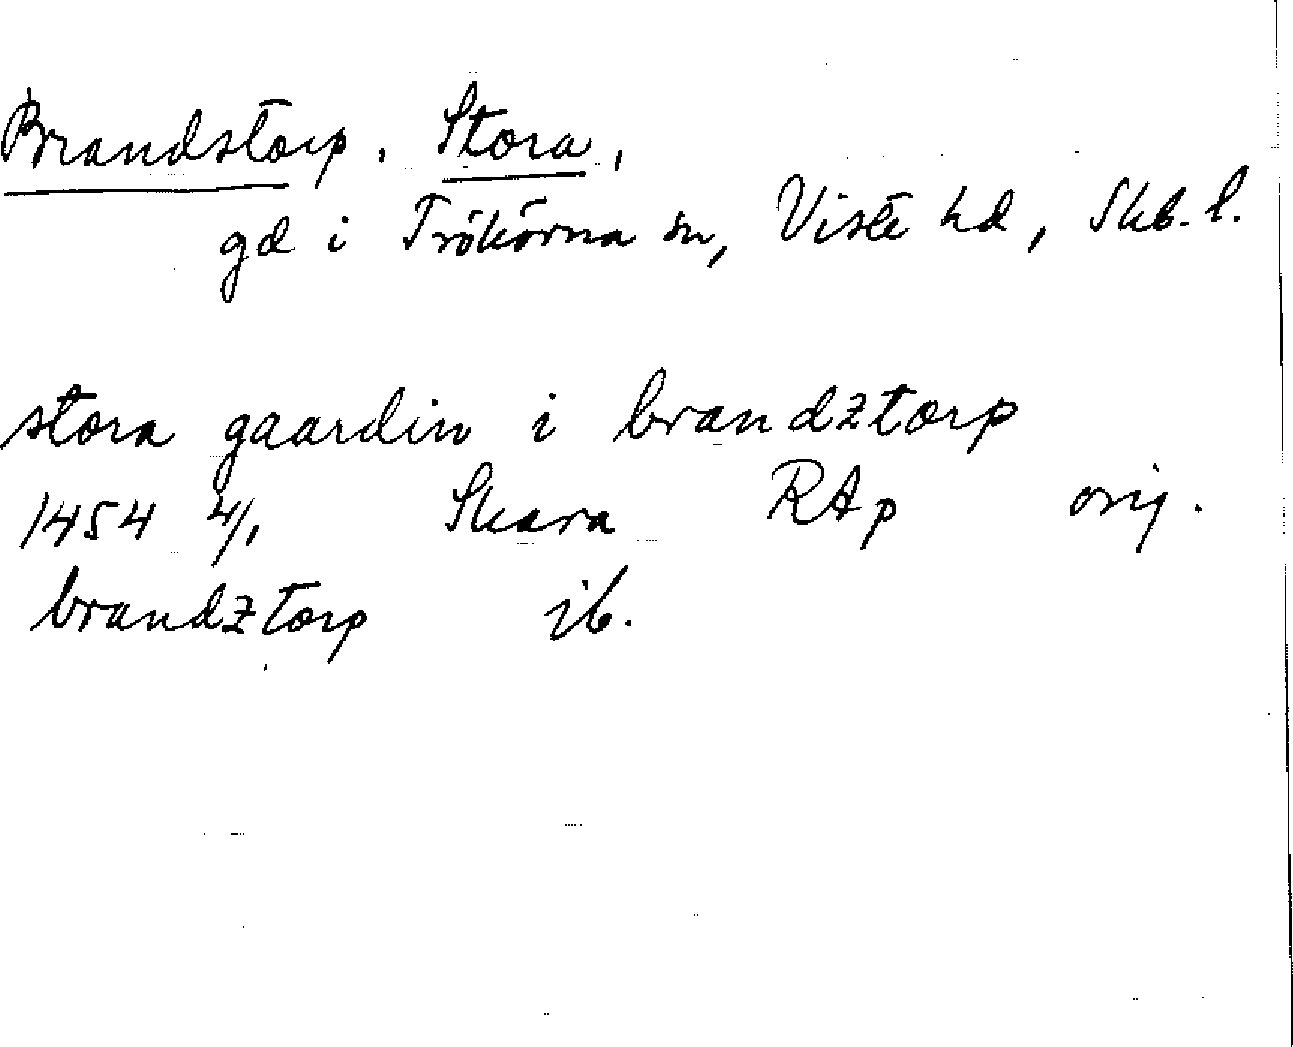 Brandstorp, Stora,
gd i Trökörna sn, Viste hd, Skb. l.
stora gaardin i brandztorp
1454 4/1 Skara RAp orig.
brandztorp ib.